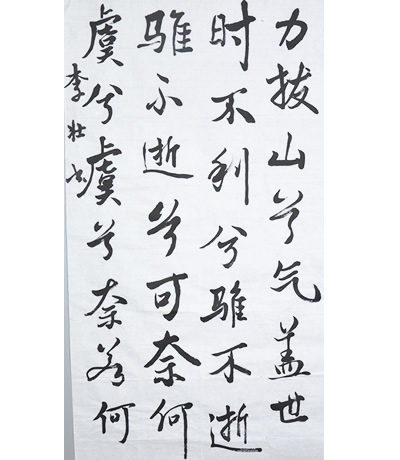 力拔山兮气盖世
时不利兮骓不逝
骓不逝兮可奈何
虞兮虞兮奈若何
李壮书